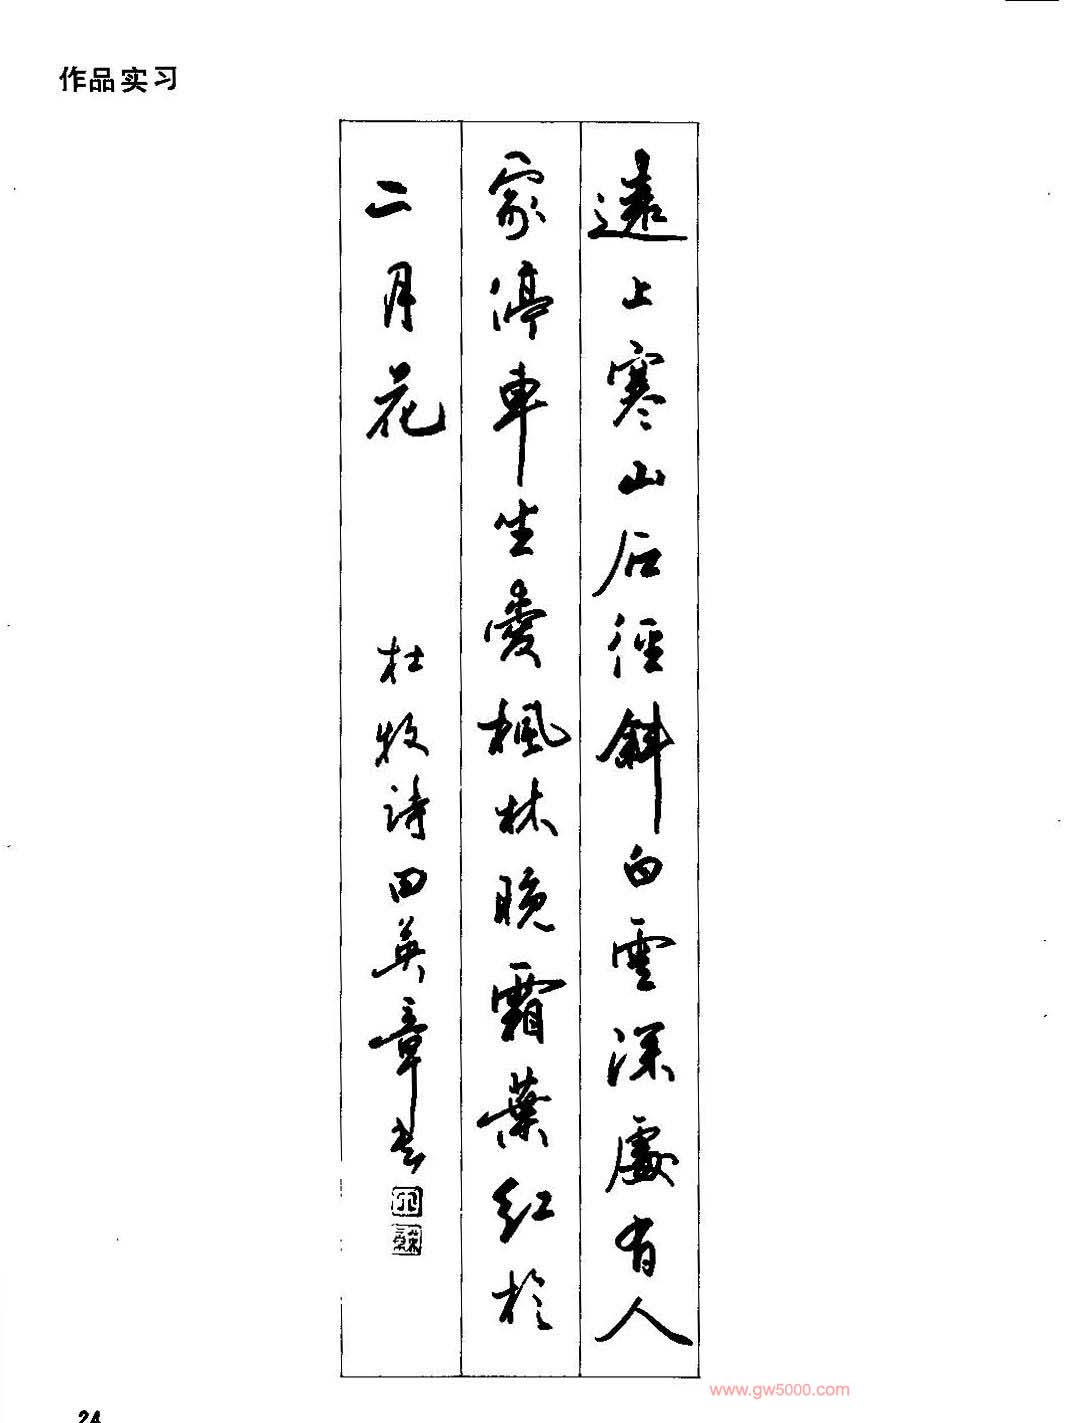 作品实习
遠上寒山石徑斜白雲深處有人
家停車坐愛楓林晚霜葉紅於
二月花 杜牧诗田英章书
www.gw5000.com
24